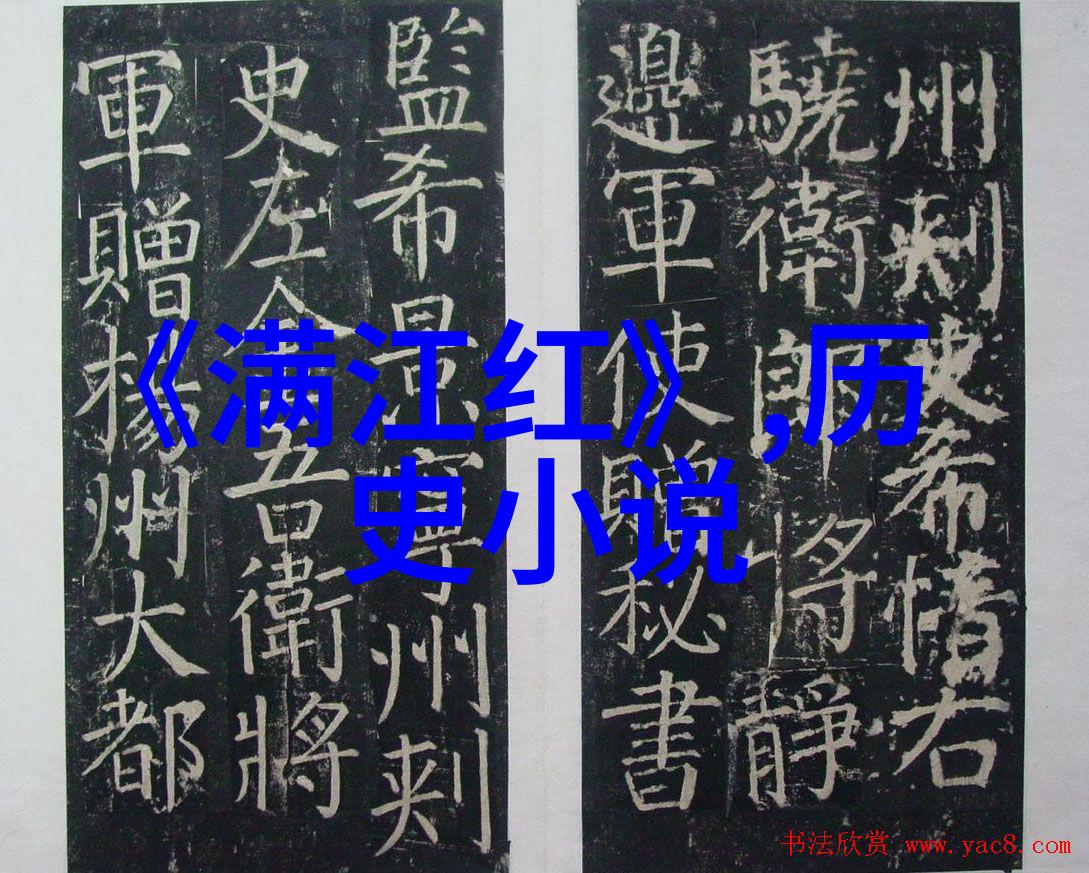 《满江红》,历
史小说
州刺史希右
驍衛郎將靜
邊軍使贈秘書
監希景寧州刺
史左金吾衛將
軍贈揚州大都
书法欣赏 www.yac8.com